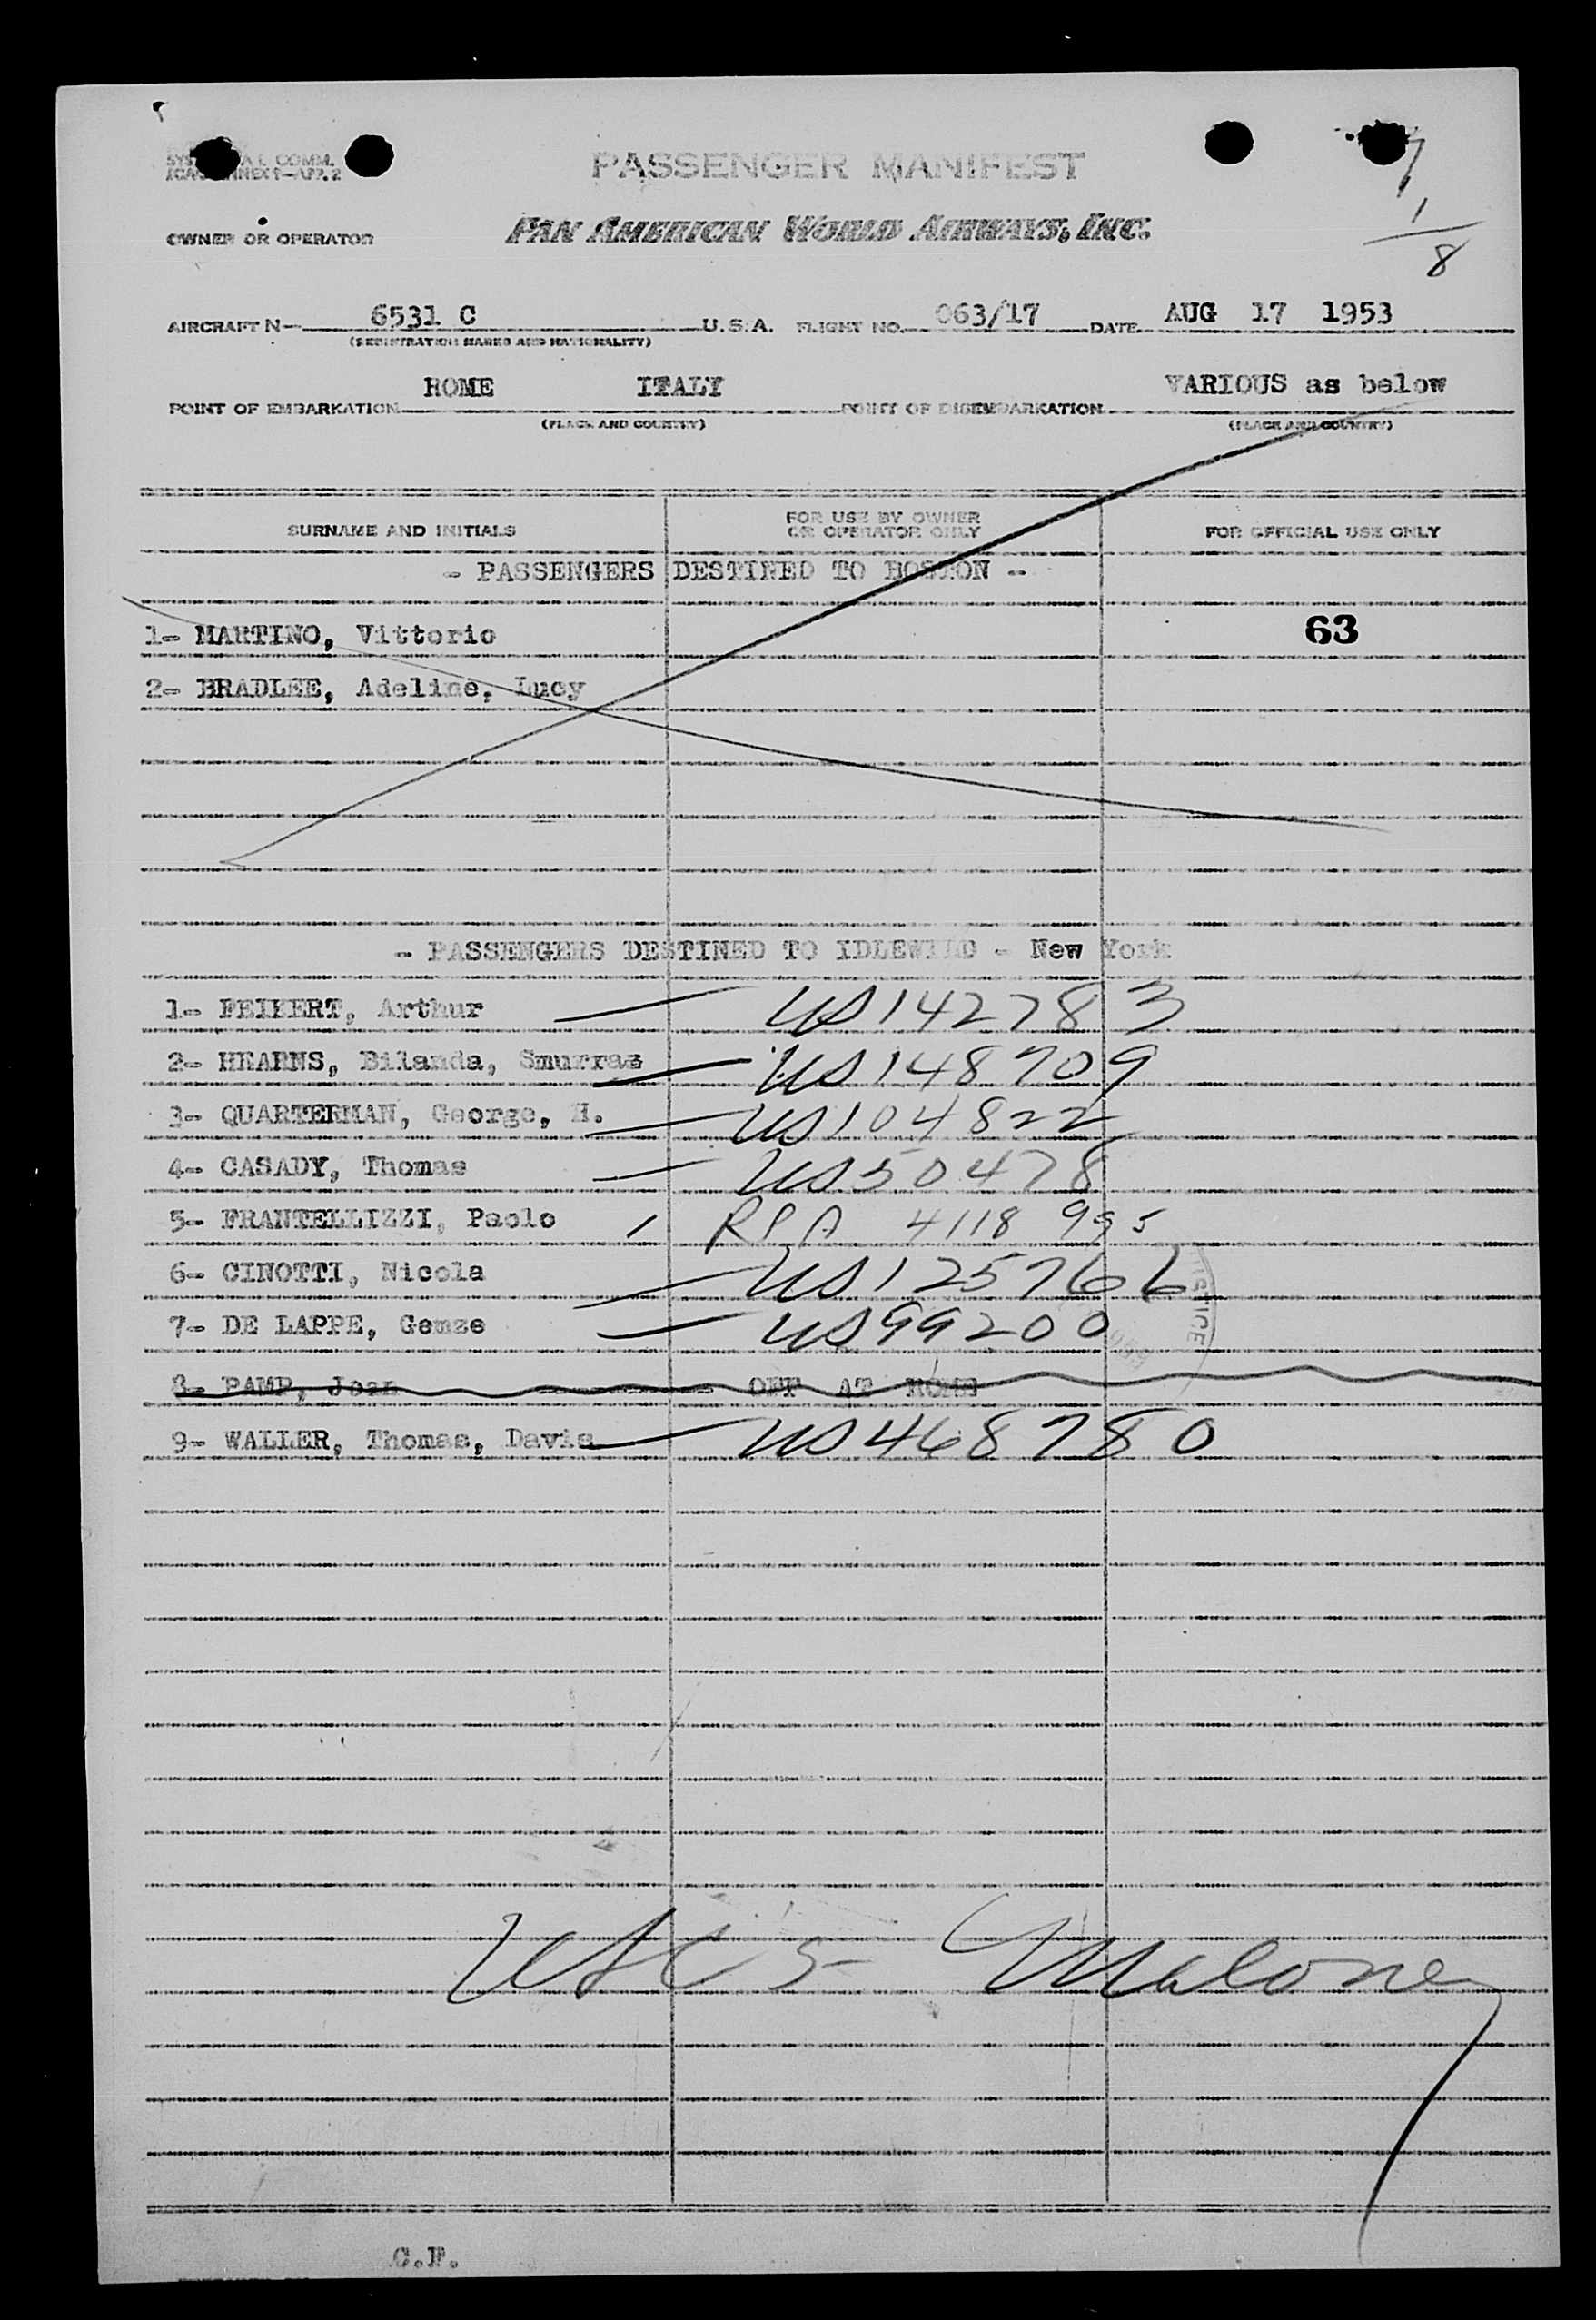 PASSENGER MANIFEST
OWNER OR OPERATOR PAN AMERICAN WORLD AIRWAYS, INC.
7
1
8
AIRCRAFT N- 6531 C U.S.A. FLIGHT NO. 063/17 DATE AUG 17 1953
(REGISTRATION MARKS AND NATIONALITY)
POINT OF EMBARKATION ROME ITALY POINT OF DISEMBARKATION VARIOUS as below
(PLACE AND COUNTRY) (PLACE AND COUNTRY)
SURNAME AND INITIALS FOR USE BY OWNER OR OPERATOR ONLY FOR OFFICIAL USE ONLY
- PASSENGERS DESTINED TO BOSTON -
1- MARTINO, Vittorio 63
2- BRADLEE, Adeline, Lucy
- PASSENGERS DESTINED TO IDLEWILD - New York
1- FEIKERT, Arthur US 142783
2- HEARNS, Bilanda, Smurras US 148709
3- QUARTERMAN, George, H. US 104822
4- CASADY, Thomas US 50478
5- FRANTELLIZZI, Paolo RPA 4118 995
6- CINOTTI, Nicola US 125766
7- DE LAPPE, Gemze US 99200
8- PAMP, Jean - OFF AT ROME
9- WALLER, Thomas, Davis US 468780
Maloney
C.F.